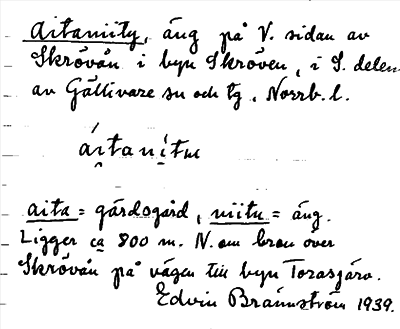 Aitaniity, äng på V. sidan av
Skrövån i byn Skröven, i S. delen
av Gällivare sn och tg, Norrb. l.
áı̯taní̯tuı
aita = gärdsgård, niitu = äng.
Ligger ca 800 m. N. om bron över
Skrövån på vägen till byn Torasjärv.
Edvin Brännström 1939.